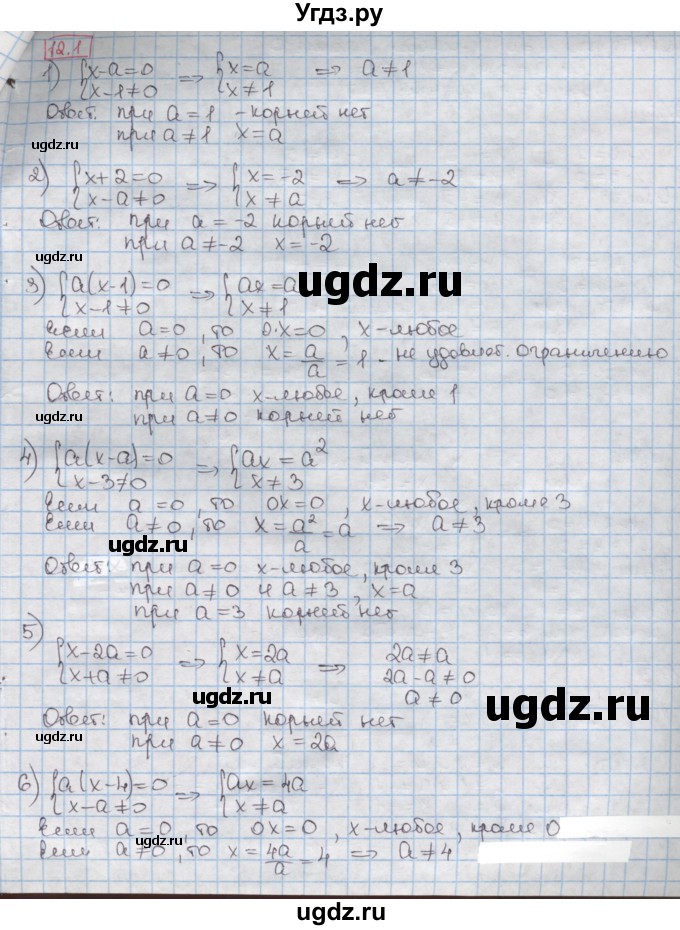 Угдз.ру
12.1
1) {x-a=0 => {x=a => a≠1
{x-1≠0 {x≠1
Ответ: при a=1 - корней нет
при a≠1 x=a
ugdz.ru
ugdz.ru
2) {x+2=0 => {x=-2 => a≠-2
{x-a≠0 {x≠a
Ответ: при a=-2 корней нет
при a≠-2 x=-2
ugdz.ru
ugdz.ru
3) {a(x-1)=0 => {ax=a
{x-1≠0 {x≠1
если a=0, то 0·x=0, x-любое
если a≠0, то x=a/a=1 - не удовлет. ограничению
ugdz.ru
ugdz.ru
Ответ: при a=0 x-любое, кроме 1
при a≠0 корней нет
ugdz.ru
4) {a(x-a)=0 => {ax=a²
{x-3≠0 {x≠3
если a=0, то 0x=0, x-любое, кроме 3
если a≠0, то x=a²/a=a => a≠3
ugdz.ru
ugdz.ru
Ответ: при a=0 x-любое, кроме 3
при a≠0 и a≠3, x=a
при a=3 корней нет
5) {x-2a=0 => {x=2a => 2a≠a
{x+a≠0 {x≠a 2a-a≠0
a≠0
ugdz.ru
ugdz.ru
Ответ: при a=0 корней нет
при a≠0 x=2a
ugdz.ru
6) {a(x-4)=0 => {ax=4a
{x-a≠0 {x≠a
если a=0, то 0x=0, x-любое, кроме 0
если a≠0, то x=4a/a=4 => a≠4
ugdz.ru
ugdz.ru
ugdz.ru